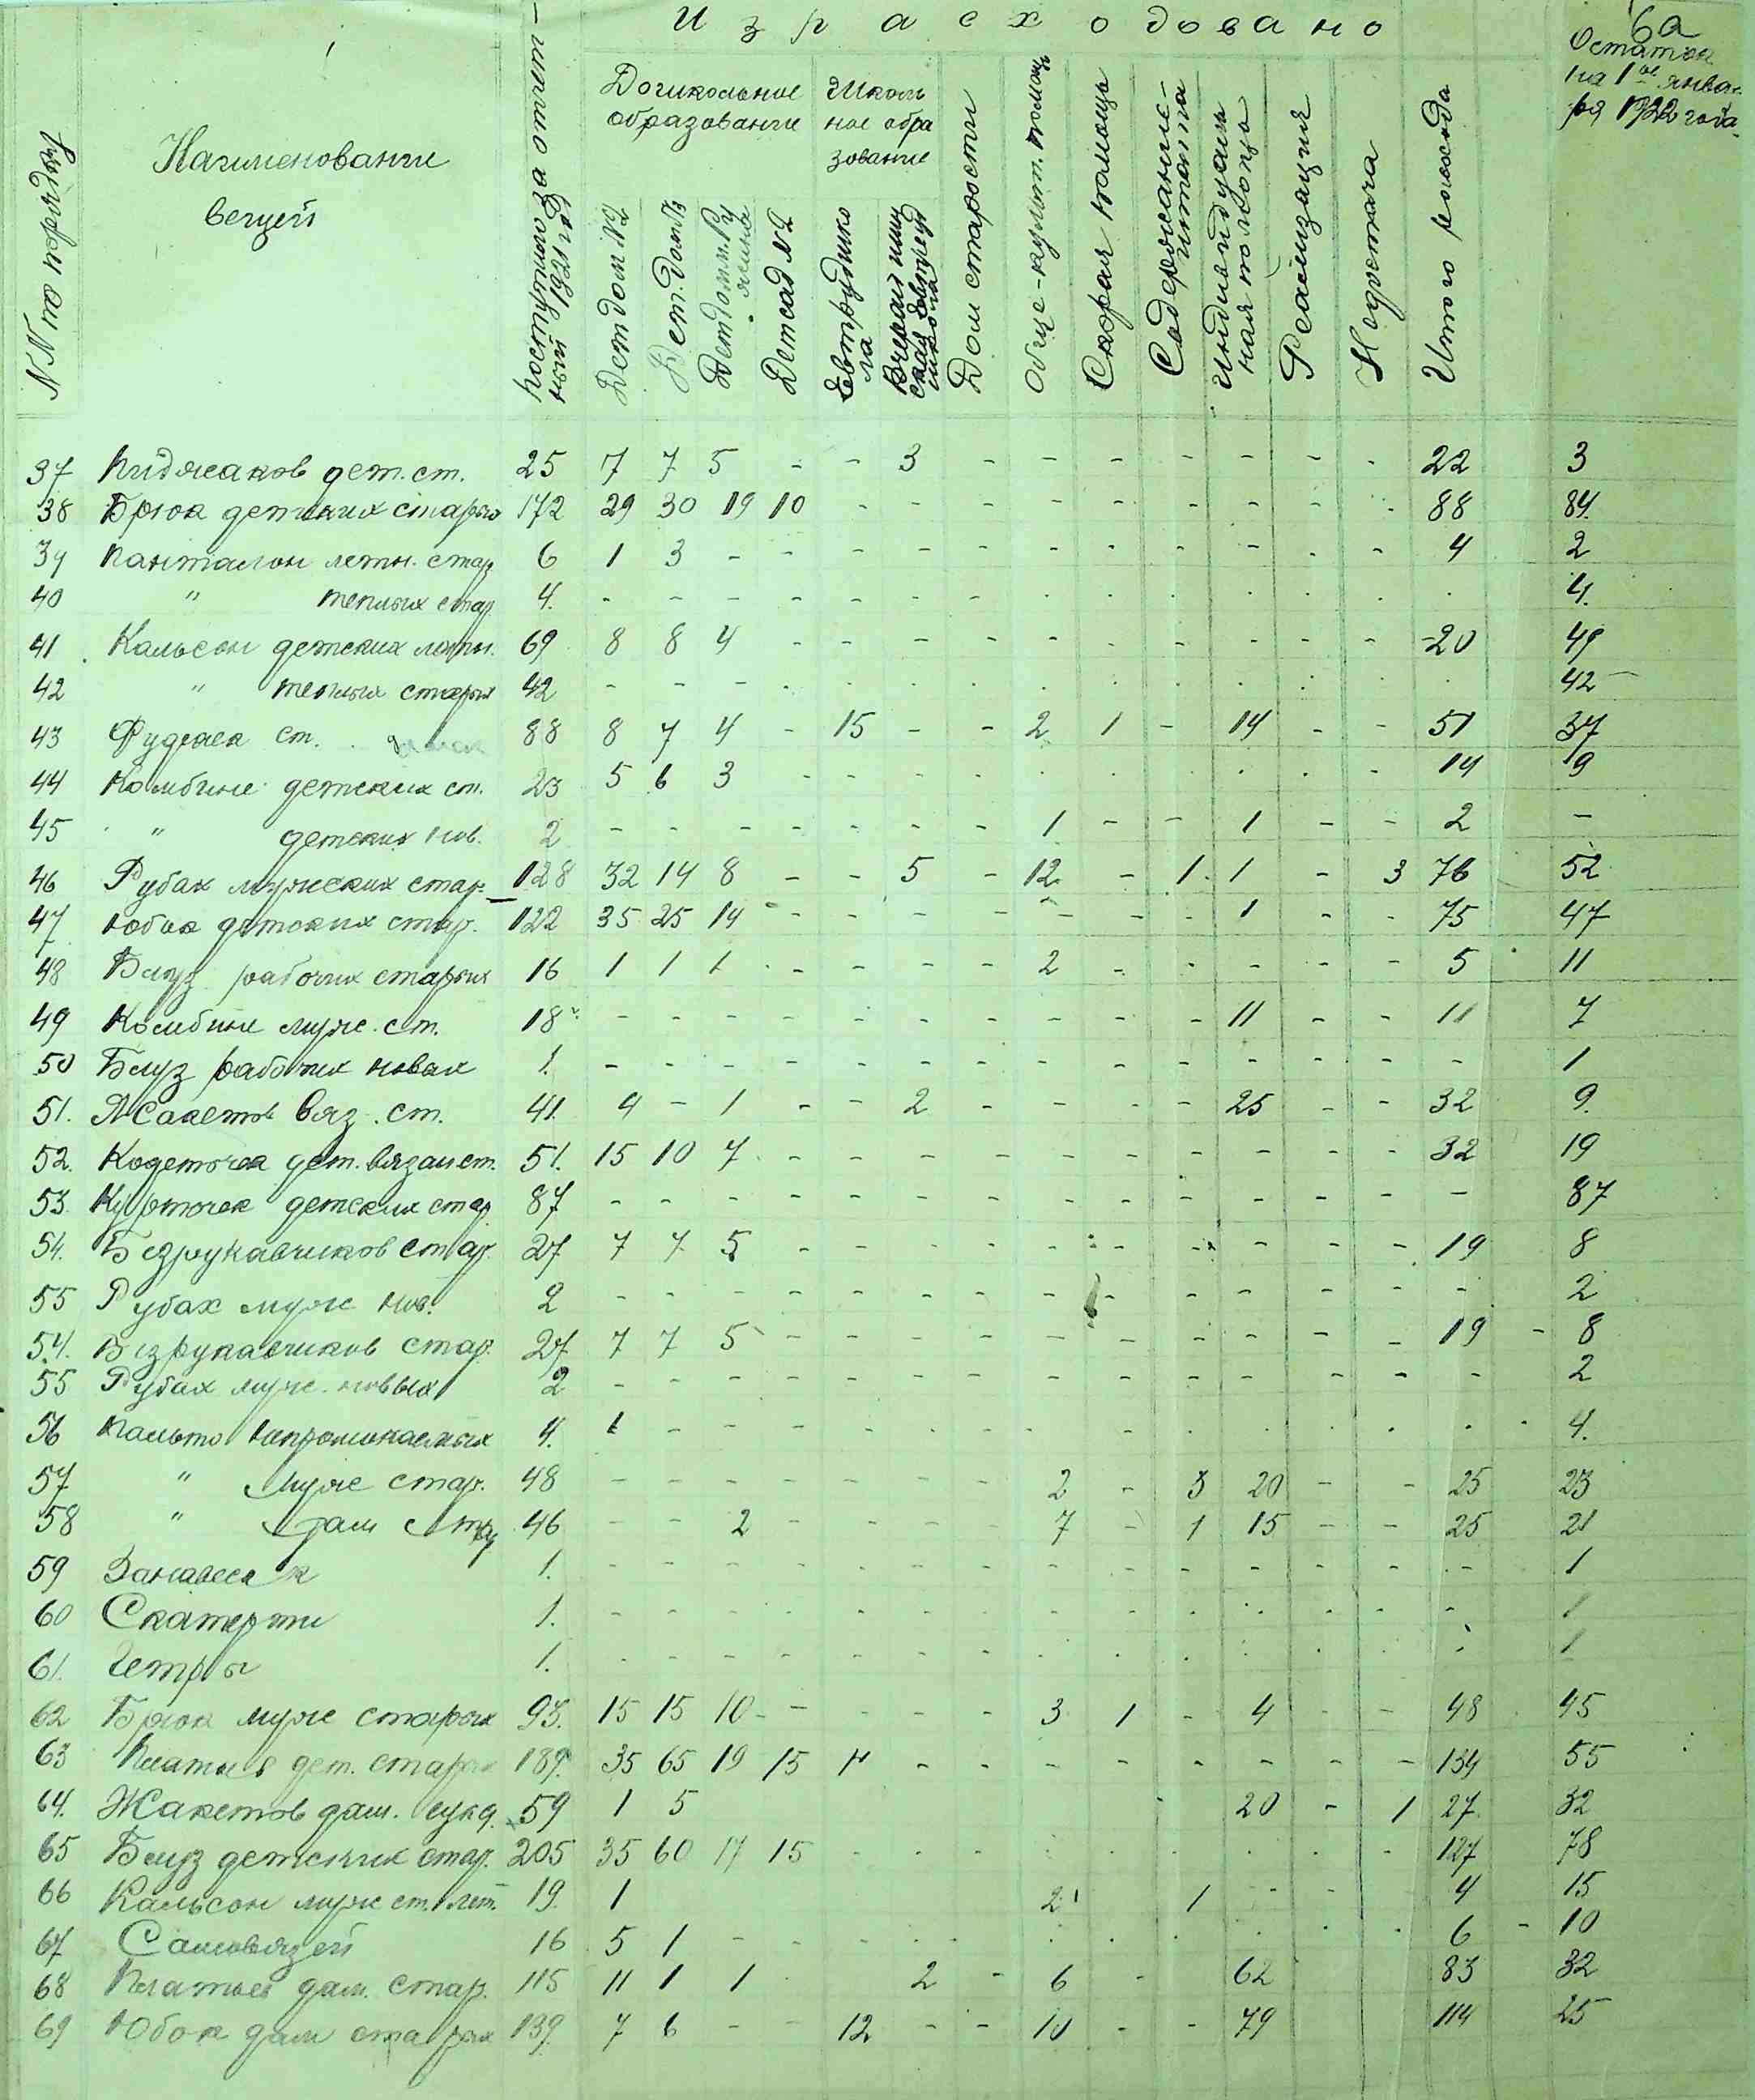 6а
Израсходовано
NN по порядку
Наименование вещей
поступило за отчетный 1921 год
Дошкольное образование
Школьное образование
Детдом N2
Дет. дом
Детдом
Детсад N2
Евтрудшкола
Дом старости
Обще-культ. помощь
Скорая помощь
Содержание штата
Индивидуальная помощь
Реализация
Недостача
Итого расхода
Остаток на 1ое января 1922 года
37 Пиджаков дет. ст. 25 7 7 5 - - 3 - - - - - - - 22 3
38 Брюк детских старых 172 29 30 19 10 - - - - - - - - - 88 84
39 Панталон летн. стар. 6 1 3 - - - - - - - - - - - 4 2
40 " теплых стар. 4. - - - - - - - - - - - - - - 4.
41 Кальсон детских летн. 69 8 8 4 - - - - - - - - - - 20 49
42 " теплых старых 42 - - - - - - - - - - - - - - 42
43 Фуджек ст. 88 8 7 4 - 15 - - 2 1 - 14 - - 51 37
44 Комбине детских ст. 23 5 6 3 - - - - - - - - - - 14 9
45 " детских нов. 2 - - - - - - - 1 - - 1 - - 2 -
46 Рубах мужских стар. 128 32 14 8 - - 5 - 12 - 1 1 - - 3 76 52
47 Юбок детских стар. 122 35 25 14 - - - - - - - 1 - - 75 47
48 Блуз рабочих старых 16 1 1 1 - - - - 2 - - - - - 5 11
49 Комбине муж. ст. 18 - - - - - - - - - - 11 - - 11 7
50 Блуз рабочих новых 1. - - - - - - - - - - - - - - 1
51. Жакетов вяз. ст. 41. 4 - 1 - - 2 - - - - 25 - - 32 9.
52. Кофточек дет. вязан ст. 51. 15 10 7 - - - - - - - - - - 32 19
53. Курточек детских стар. 87 - - - - - - - - - - - - - - 87
54. Безрукавчиков стар. 27 7 7 5 - - - - - - - - - - 19 8
55 Рубах муж нов. 2 - - - - - - - - - - - - - - 2
54. Безрукавчиков стар. 27 7 7 5 - - - - - - - - - - 19 - 8
55 Рубах муж. новых 2 - - - - - - - - - - - - - - 2
56 Пальто непромокаемых 4. - - - - - - - - - - - - - 4.
57 " муж стар. 48 - - - - - - - 2 - 3 20 - - 25 23
58 " дам стар 46 - - 2 - - - - 7 - 1 15 - - 25 21
59 Занавесек 1. - - - - - - - - - - - - - - 1
60 Скатерти 1. - - - - - - - - - - - - - - 1
61. Гетры 1. - - - - - - - - - - - - - - 1
62 Брюк муж старых 93. 15 15 10 - - - - 3 1 - 4 - - 48 45
63 Платьев дет. старых 189. 35 65 19 15 - - - - - - - - - 134 55
64. Жакетов дам. сукд. 59 1 5 20 - 1 27. 32
65 Блуз детских стар. 205 35 60 17 15 - - - - - - - - - 127 78
66 Кальсон муж ст. лет. 19. 1 2 1 - - 4 15
67 Самовязей 16 5 1 - - - - - - - - - - - 6 - 10
68 Платьев дам. стар. 115 11 1 1 2 - 6 - 62 83 32
69 Юбок дам старых 139. 7 6 - - 12 - - 10 - - 79 114 25